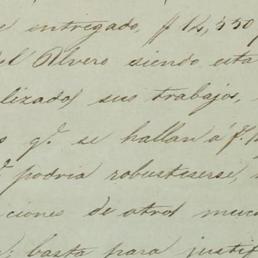 e entregado, f 12,550
del Alvero siendo esta
lizados sus trabajos,
s q.e se hallan á f.
podria robustecerse,
ciones de otros muc
; basta para justif